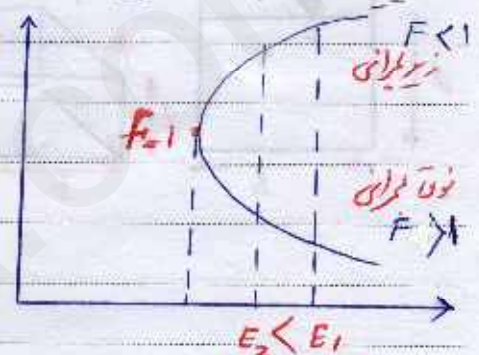 F < 1
زیر بحرانی
F = 1
فوق بحرانی
F > 1
E₂ < E₁